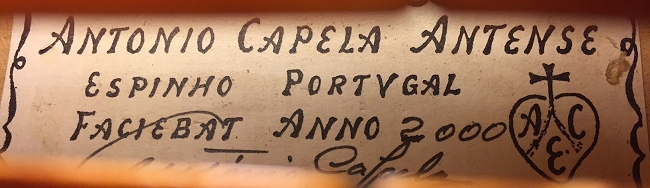 ANTONIO CAPELA ANTENSE
ESPINHO PORTVGAL
FACIEBAT ANNO 2000
A C
E
Capela